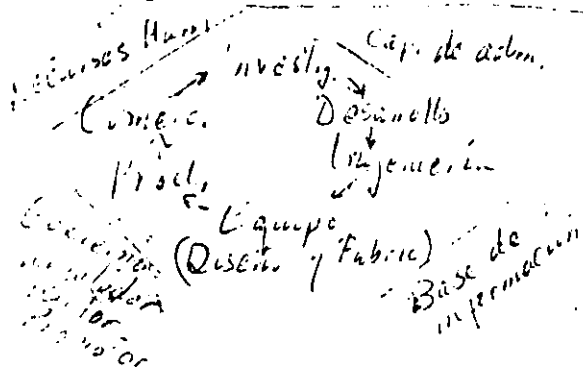 Recursos Hum.
Investig.
Cap. de adm.
Comerc.
Desarrollo
Ingeniería
Prod.
Equipo
(Diseño y Fabric)
Base de
información